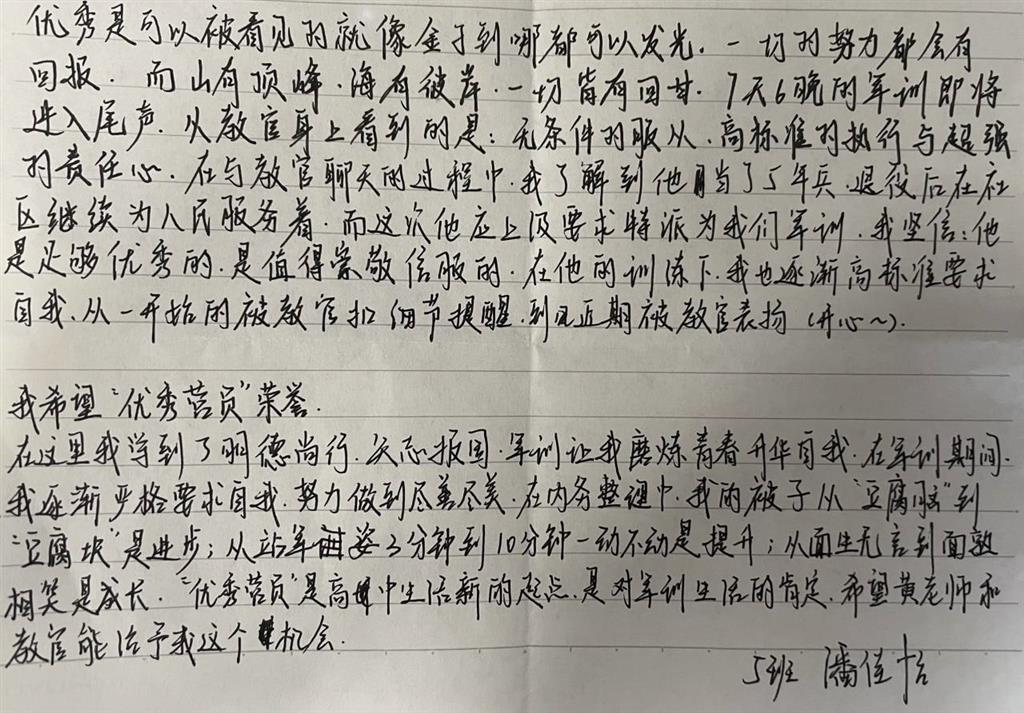 优秀是可以被看见的就像金子到哪都可以发光.一切的努力都会有
回报.而山有顶峰.海有彼岸.一切皆有回甘.7天6晚的军训即将
进入尾声.从教官身上看到的是:无条件的服从.高标准的执行与超强
的责任心.在与教官聊天的过程中.我了解到他当了5年兵.退役后在社
区继续为人民服务着.而这次他应上级要求特派为我们军训.我坚信:他
是足够优秀的.是值得崇敬信服的.在他的训练下.我也逐渐高标准要求
自我.从一开始的被教官扣细节提醒.到近期被教官表扬(开心~).
我希望“优秀营员”荣誉.
在这里我学到了明德尚行.矢志报国.军训让我磨炼青春升华自我.在军训期间.
我逐渐严格要求自我.努力做到尽善尽美.在内务整理中.我的被子从“豆腐脑”到
“豆腐块”是进步;从站军姿3分钟到10分钟一动不动是提升;从面生无言到面熟
相笑是成长.“优秀营员”是高中生活新的起点.是对军训生活的肯定.希望黄老师和
教官能给予我这个机会.
5班 潘佳怡